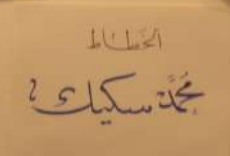 الخطاط
محمد سكيك